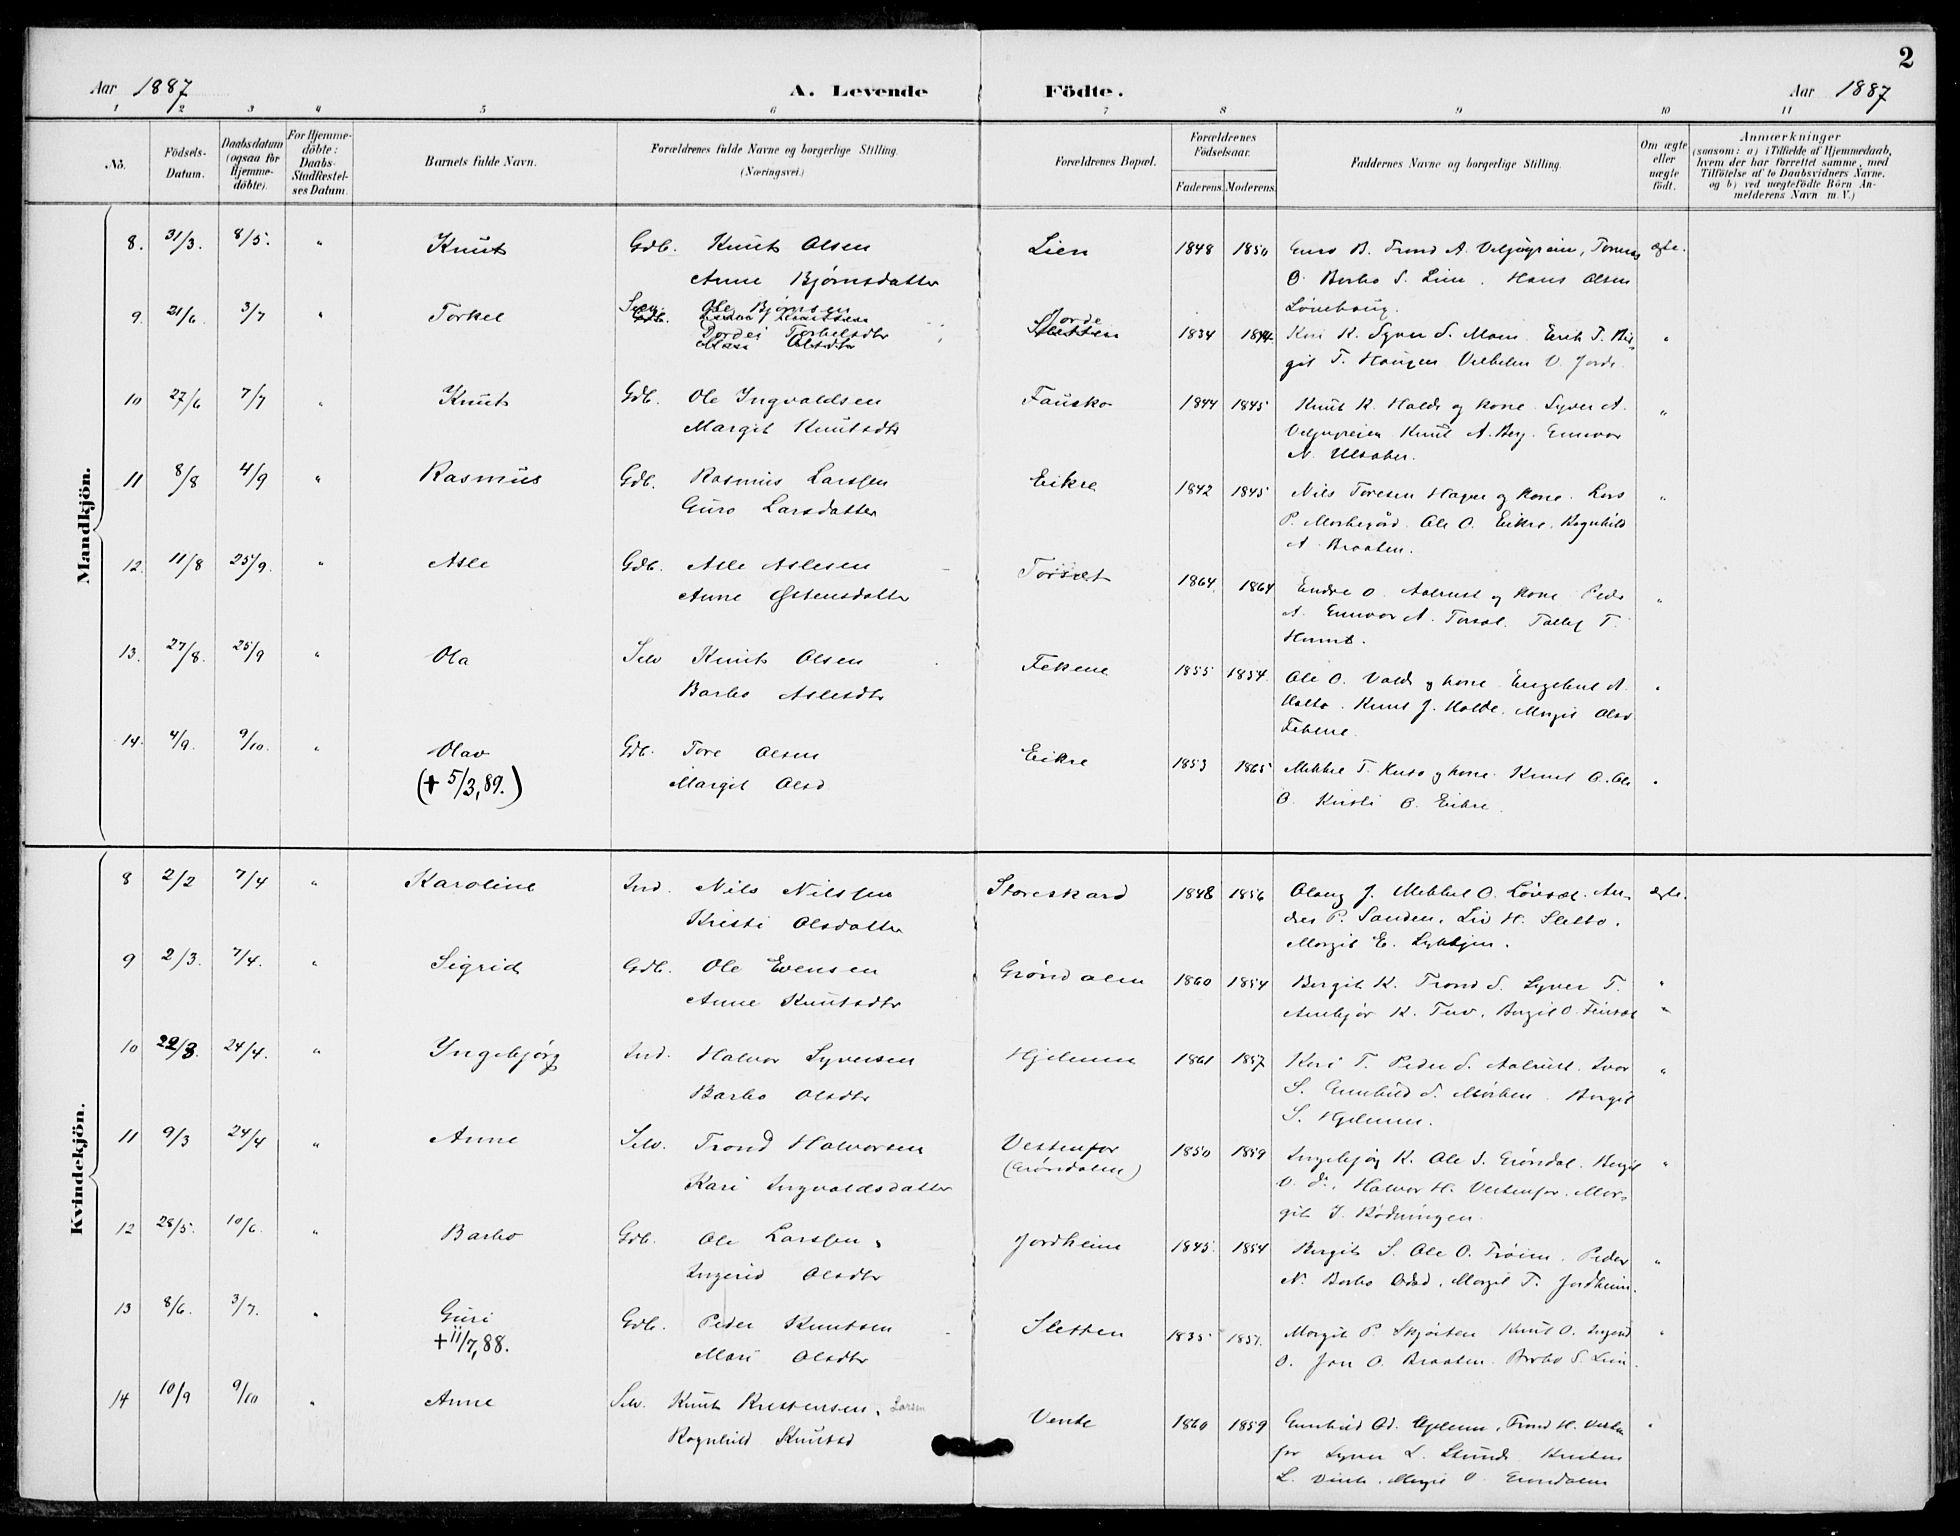 2
Aar 1887
A. Levende Födte.
Aar 1887
1 2 3 4 5 6 7 8 9 10 11
No.
Födsels-Datum.
Daabsdatum (ogsaa för Hjemme-döbte).
For Hjemme-döbte: Daabs-Stadfæstel-ses Datum.
Barnets fulde Navn.
Forældrenes fulde Navne og borgerlige Stilling.
(Næringsvei.)
Forældrenes Bopæl.
Forældrenes Födselsaar.
Faderens. Moderens.
Faddernes Navne og borgerlige Stilling.
Om ægte eller uægte födt.
Anmærkninger
(saasom: a) i Tilfælde af Hjemmedaab,
hvem der har forrettet samme, med
Tilföielse af to Daabsvidners Navne.
og b) ved uægtefödte Börn An-
melderens Navn m. V.)
Mandkjön.
8. 31/3. 8/5. " Knut Gdb. Knut Olsen Lien 1848 1850 Guro B. Trond A. Veljugrein, Tore ægte.
Anne Bjørnsdatter O. Barbo S. Lien. Hans Olsen
9. 21/6 3/7 " Torkel Selv. Ole Bjørnsen Jorde 1834 1844 Kari K. Syver S. Moen. Erik T. Bir- "
Dordei Torkelsdtr git T. Haugen Vilhelm O. Jorde
10 27/6 7/7 " Knut Gdb. Ole Ingvaldsen Fausko 1844 1845 Knut K. Halde og kone. Syver A. "
Margit Knutsdtr Veljugreien Knut A. Berg. Gunvor
N. Ulsaker.
11 8/8 4/9 " Rasmus Gdb. Rasmus Larssen Eikre 1842 1845 Nils Toresen Hagen og kone. Lars "
Guro Larsdatter P. Markegård. Ole O. Eikre. Ragnhild
A. Braaten.
12. 11/8 25/9. " Asle Gdb. Asle Aslesen Torsæt 1864. 1864 Endre O. Aalrust og kone. Peder "
Anne Østensdatter A. Gunvor A. Torset. T.
13. 27/8. 25/9 " Ola Selv Knut Olsen Fekene 1855 1854. Ole O. og kone. Engebret A. "
Barbo Aslesdtr Knut J. Halde. Margit Olsd
Fekene.
14. 4/9. 9/10. " Olav Gdb. Tore Olsen Eikre 1853 1865 Mikkel T. og kone. Knut O. Ole "
(+ 5/3, 89.) Margit Olsd O. Kristi O. Eikre.
Kvindekjön.
8 2/2 7/4 " Karoline Ind. Nils Nilssen Storeskard 1848 1856 Olaug J. Mikkel O. An- ægte.
Kristi Olsdatter dres P. Sanden. Liv H. Sletto.
Margit E.
9 2/3. 7/4. " Sigrid Gdb. Ole Evensen Gröndalen 1860 1854 Bergit K. Trond S. Syver T. "
Anne Knutsdtr K. Birgit O. "
10 22/3. 24/4. " Ingebjörg Ind. Halvor Syversen Hjelmen 1861 1857. Kari T. Peder S. Aalrust. Ivar "
Barbo Olsdtr S. Gunhild S. Mörken. Birgit
S. Hjelmen.
11 9/3 24/4 " Anne Selv. Trond Halvorsen Vestenfor 1850 1859 Ingebjør K. Ole S. Gröndal. Bergit "
Kari Ingvaldsdatter (Gröndalen) O. do. Halvor H. Vestenfor. Mar-
git I. Rödningen.
12 28/5. 10/6. " Barbo Gdb. Ole Larssen Jordheim 1845. 1854 Bergit S. Ole O. Tröim. Peder "
Ingerid Olsdtr N. Barbo Odsd. Margit T. Jordheim.
13 8/6. 3/7. " Guri Gdb. Peder Knutsen Sletten 1835 1857. Margit P. Skjörten Knut O. Ingrid "
+ 11/7, 88. Mari Olsdtr O. Jon O. Braaten. Barbo S. Lien.
14 10/9 9/10 " Anne Selv. Knut Kristensen. Larsen Vente 1860 1859 Gunhild Od. Hjelmen. Trond H. Vesten- "
Ragnhild Knutsd for Syver L. Kristen
L. Margit O. Grøndalen